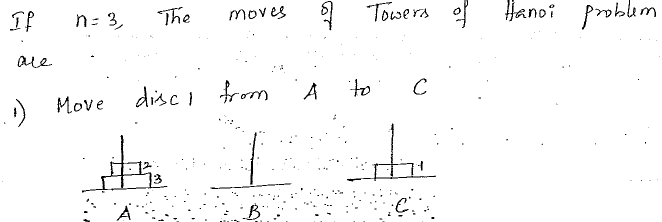 If n=3, The moves of Towers of Hanoi problem
are
1) Move disc 1 from A to C
2
3
1
A B C